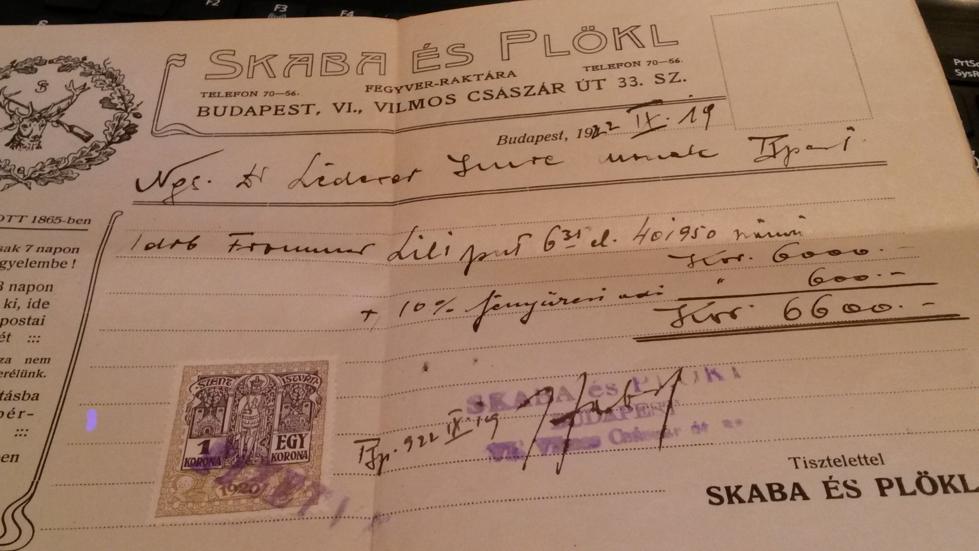 SKABA ÉS PLÖKL
FEGYVER-RAKTÁRA
TELEFON 70—56.
TELEFON 70—56.
BUDAPEST, VI., VILMOS CSÁSZÁR ÚT 33. SZ.
Budapest, 1922 IX. 19
Ngs. Dr Léderer Imre urnak
1 drb Frommer Lili put 6 35 cl. 401950
Kor. 6000.—
+ 10% fényűzési adó " 600.—
Kor 6600.—
OTT 1865-ben
sak 7 napon
gyelembe!
8 napon
ki, ide
postai
ét :::
za nem
erélünk.
tásba
bér-
:::
en
SZENT ISTVÁN
1 KORONA
EGY KORONA
1920
Bp. 922 IX. 19
SKABA és PLÖKL
BUDAPEST
VI. Vilmos Császár út
Tisztelettel
SKABA ÉS PLÖKL
PrtSc
SysR
F2
F3
F4